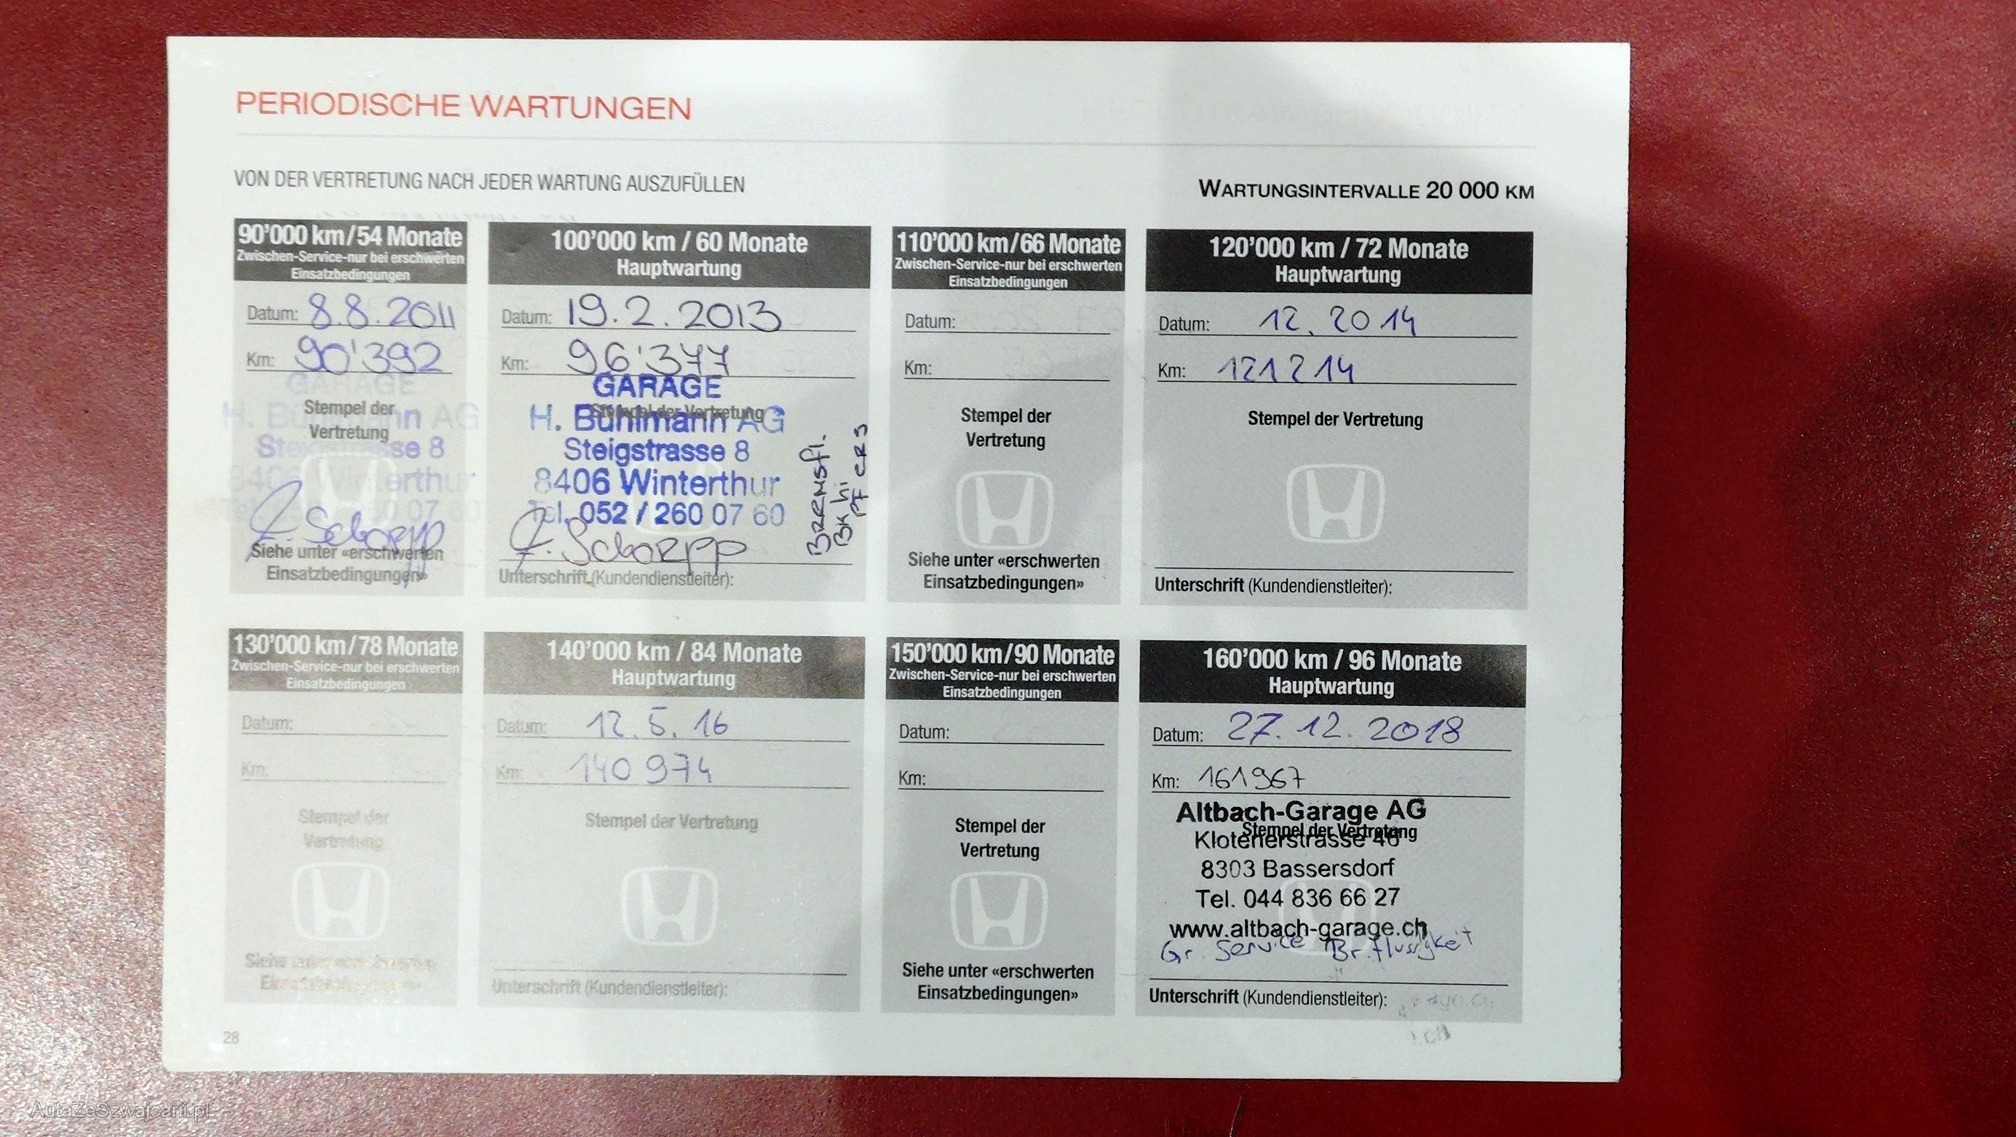 PERIODISCHE WARTUNGEN
VON DER VERTRETUNG NACH JEDER WARTUNG AUSZUFÜLLEN
WARTUNGSINTERVALLE 20 000 KM
90'000 km/54 Monate
Zwischen-Service-nur bei erschwerten
Einsatzbedingungen
Datum: 8.8.2011
Km: 90'392
GARAGE
Stempel der
H. Bühlmann AG
Vertretung
Steigstrasse 8
8406 Winterthur
260 07 60
F. Schorpp
Siehe unter «erschwerten
Einsatzbedingungen»
100'000 km / 60 Monate
Hauptwartung
Datum: 19.2.2013
Km: 96'377
GARAGE
Stempel der Vertretung
H. Bühlmann AG
Steigstrasse 8
8406 Winterthur
Tel. 052 / 260 07 60
F. Schorpp
Bremsfl.
BK hi
Unterschrift (Kundendienstleiter):
110'000 km/66 Monate
Zwischen-Service-nur bei erschwerten
Einsatzbedingungen
Datum:
Km:
Stempel der
Vertretung
Siehe unter «erschwerten
Einsatzbedingungen»
120'000 km / 72 Monate
Hauptwartung
Datum: 12. 2014
Km: 121214
Stempel der Vertretung
Unterschrift (Kundendienstleiter):
130'000 km/78 Monate
Zwischen-Service-nur bei erschwerten
Einsatzbedingungen
Datum:
Km:
Stempel der
Vertretung
Siehe unter «erschwerten
Einsatzbedingungen»
140'000 km / 84 Monate
Hauptwartung
Datum: 12.5.16
Km: 140974
Stempel der Vertretung
Unterschrift (Kundendienstleiter):
150'000 km/90 Monate
Zwischen-Service-nur bei erschwerten
Einsatzbedingungen
Datum:
Km:
Stempel der
Vertretung
Siehe unter «erschwerten
Einsatzbedingungen»
160'000 km / 96 Monate
Hauptwartung
Datum: 27.12.2018
Km: 161967
Altbach-Garage AG
Stempel der Vertretung
Klotenerstrasse 46
8303 Bassersdorf
Tel. 044 836 66 27
www.altbach-garage.ch
Gr. Service Br.flüssigkeit
Unterschrift (Kundendienstleiter):
28
AutaZeSzwajcarii.pl